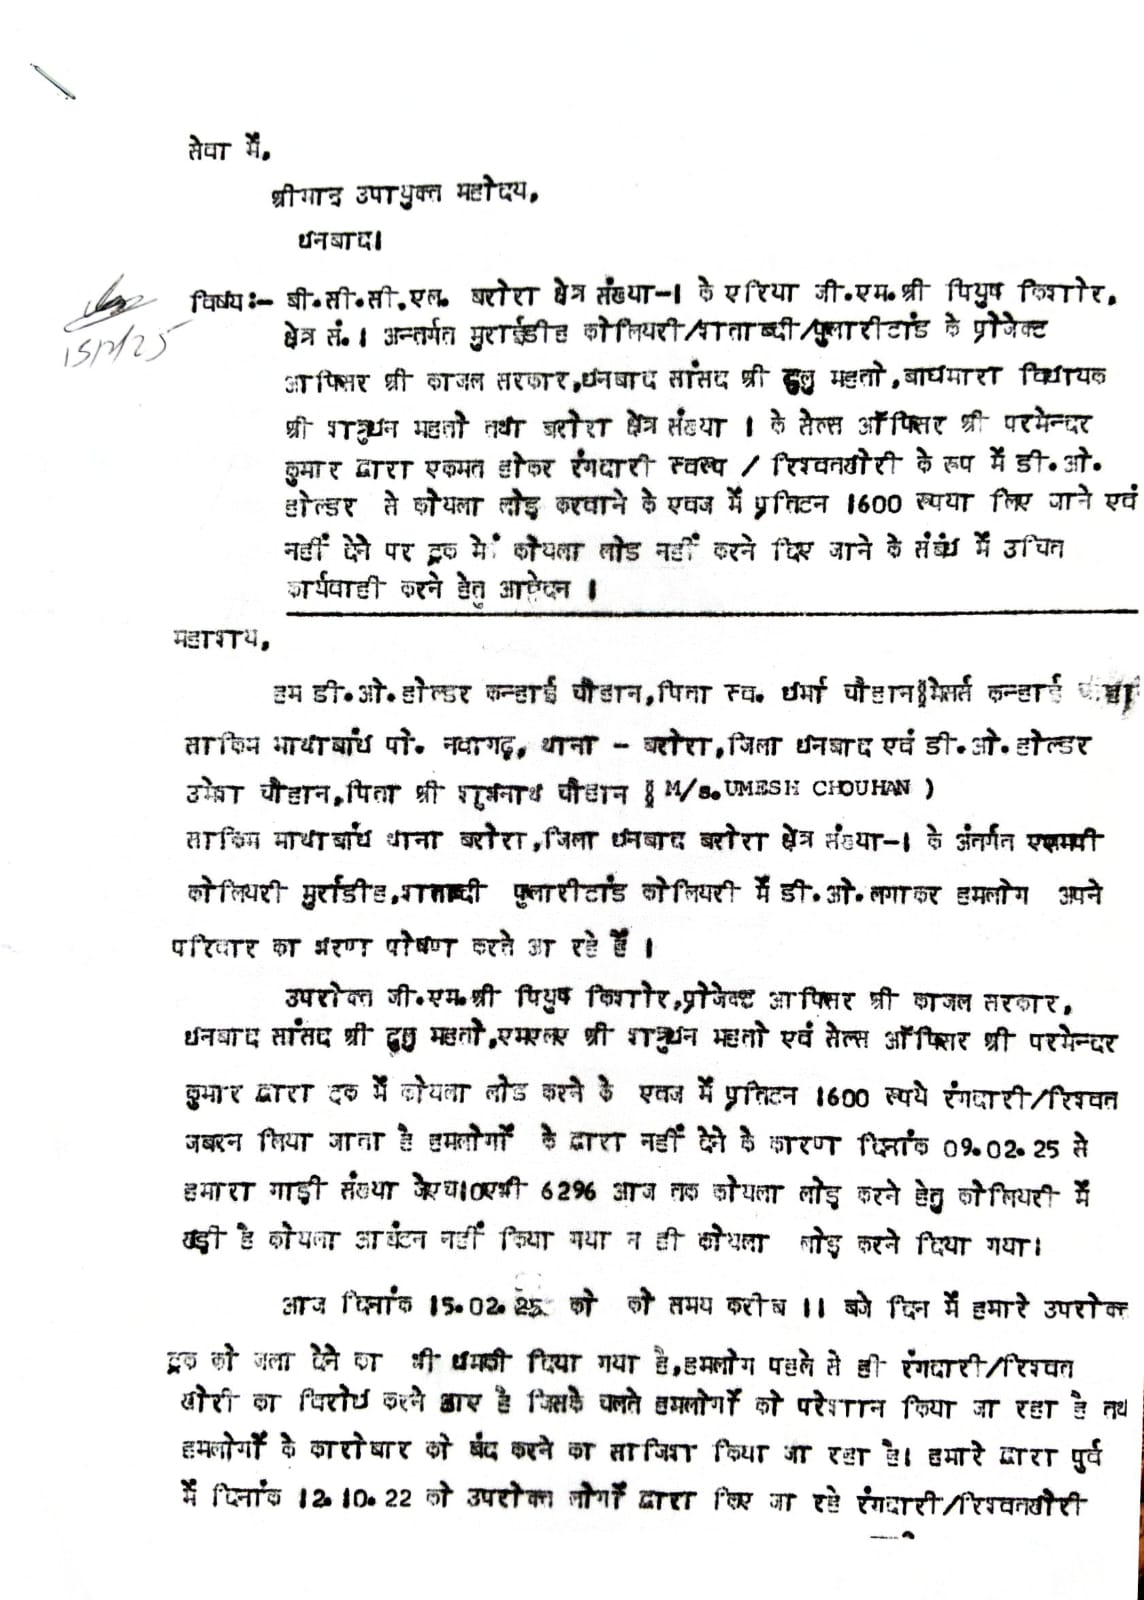 सेवा में,
श्रीमान उपायुक्त महोदय,
धनबाद।
विषय:- बी.सी.सी.एल. बरोरा क्षेत्र संख्या-1 के एरिया जी.एम.श्री पियुष किशोर,
क्षेत्र सं.1 अन्तर्गत मुराईडीह कोलियरी/शताब्दी/फुलारीटांड के प्रोजेक्ट
15/2/25
आफिसर श्री काजल सरकार,धनबाद सांसद श्री ढुलु महतो,बाघमारा विधायक
श्री शत्रुधन महतो तथा बरोरा क्षेत्र संख्या 1 के सेल्स ऑफिसर श्री परमेन्दर
कुमार द्वारा एकमत होकर रंगदारी स्वरुप / रिश्वतखोरी के रूप में डी.ओ.
होल्डर से कोयला लोड़ करवाने के एवज में प्रतिटन 1600 रुपया लिए जाने एवं
नहीं देने पर ट्रक में कोयला लोड नहीं करने दिए जाने के संबंध में उचित
कार्यवाही करने हेतु आवेदन ।
महाशय,
हम डी.ओ.होल्डर कन्हाई चौहान,पिता स्व. धर्मा चौहान मेसर्स कन्हाई
साकिम माथाबांध पो. नवागढ़, थाना - बरोरा,जिला धनबाद एवं डी.ओ.होल्डर
उमेश चौहान,पिता श्री शुभनाथ चौहान ( M/s.UMESH CHOUHAN )
साकिम माथाबांध थाना बरोरा,जिला धनबाद बरोरा क्षेत्र संख्या-1 के अंतर्गत
कोलियरी मुर्राडीह,शताब्दी फुलारीटांड कोलियरी में डी.ओ.लगाकर हमलोग अपने
परिवार का भरण पोषण करते आ रहे हैं ।
उपरोक्त जी.एम.श्री पियुष किशोर,प्रोजेक्ट आफिसर श्री काजल सरकार,
धनबाद सांसद श्री ढुलु महतो,एमएलए श्री शत्रुधन महतो एवं सेल्स ऑफिसर श्री परमेन्दर
कुमार द्वारा ट्रक में कोयला लोड करने के एवज में प्रतिटन 1600 रुपये रंगदारी/रिश्वत
जबरन लिया जाता है हमलोगों के द्वारा नहीं देने के कारण दिनांक 09.02.25 से
हमारा गाड़ी संख्या जेएच10एभी 6296 आज तक कोयला लोड़ करने हेतु कोलियरी में
खड़ी है कोयला आबंटन नहीं किया गया न ही कोयला लोड़ करने दिया गया।
आज दिनांक 15.02.25 को को समय करीब 11 बजे दिन में हमारे उपरोक्त
ट्रक को जला देने का भी धमकी दिया गया है,हमलोग पहले से ही रंगदारी/रिश्वत
खोरी का विरोध करने आए है जिसके चलते हमलोगों को परेशान किया जा रहा है तथ
हमलोगों के कारोबार को बंद करने का साजिश किया जा रहा है। हमारे द्वारा पुर्व
में दिनांक 12.10.22 को उपरोक्त लोगों द्वारा लिए जा रहे रंगदारी/रिश्वतखोरी